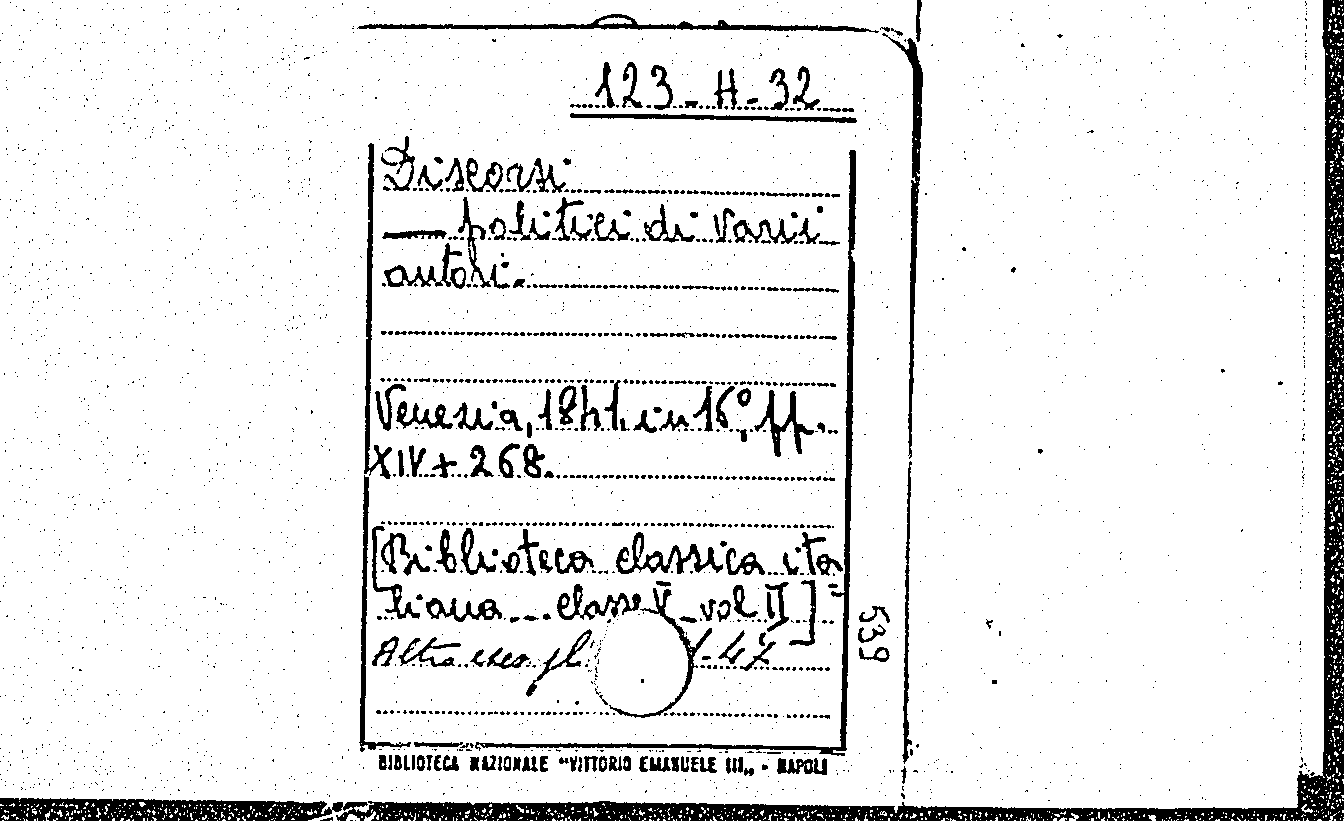 123-H-32
Discorsi
— politici di varii
autori.
Venezia, 1841. in 16°, pp.
XIV + 268.
[Biblioteca classica ita=
liana - classe V - vol II]
Altro
-47
539
BIBLIOTECA NAZIONALE "VITTORIO EMANUELE III„ - NAPOLI